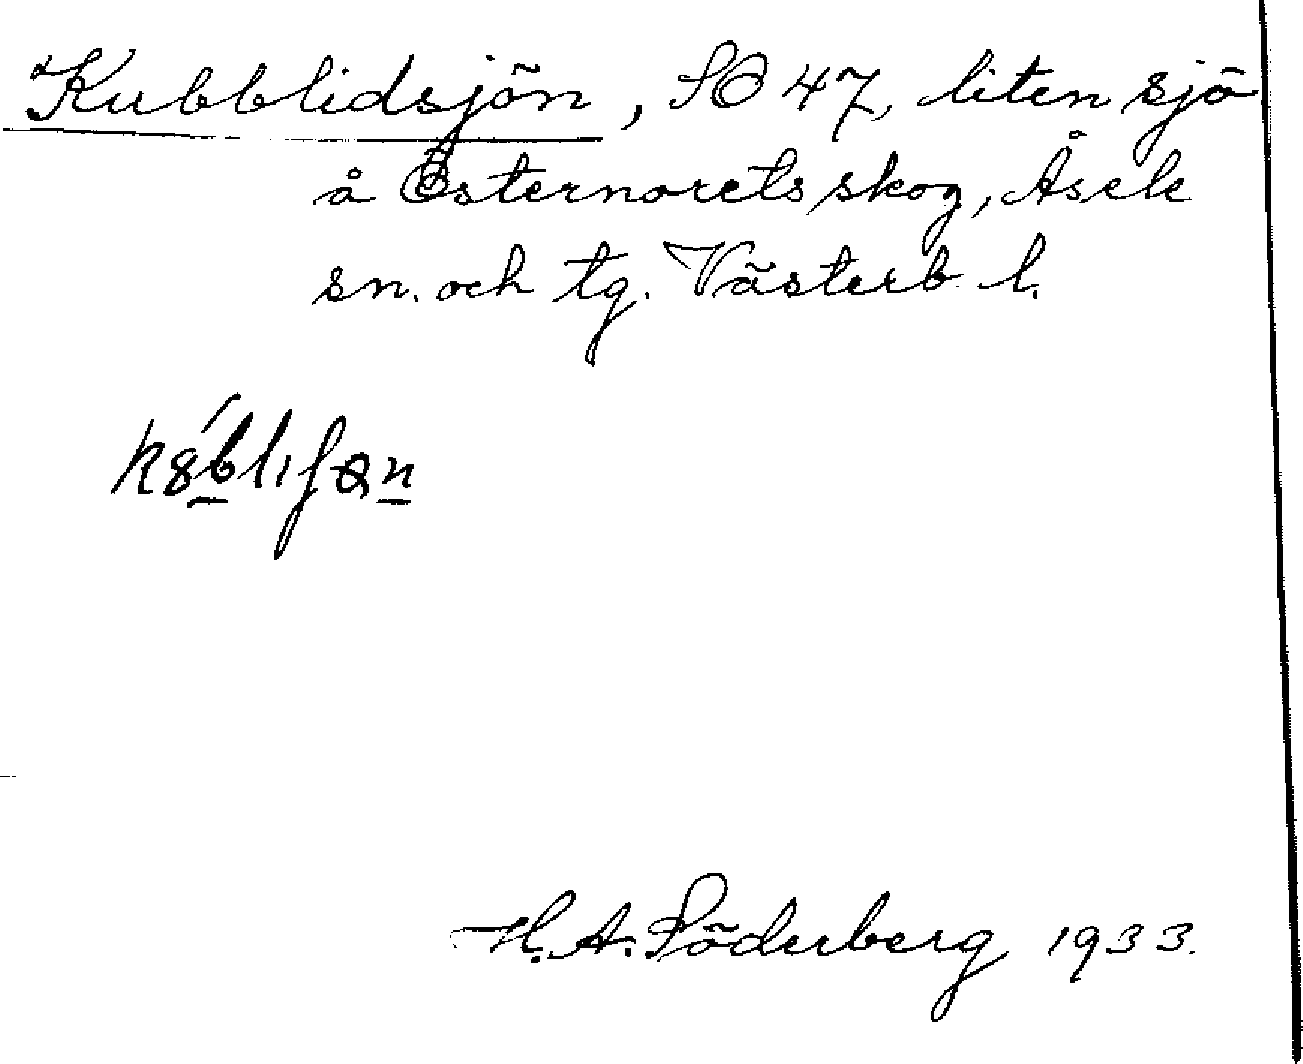 Kubblidsjön, SO 47, liten sjö
å Östernorets skog, Åsele
sn. och tg. Västerb. l.
H. A. Söderberg 1933.